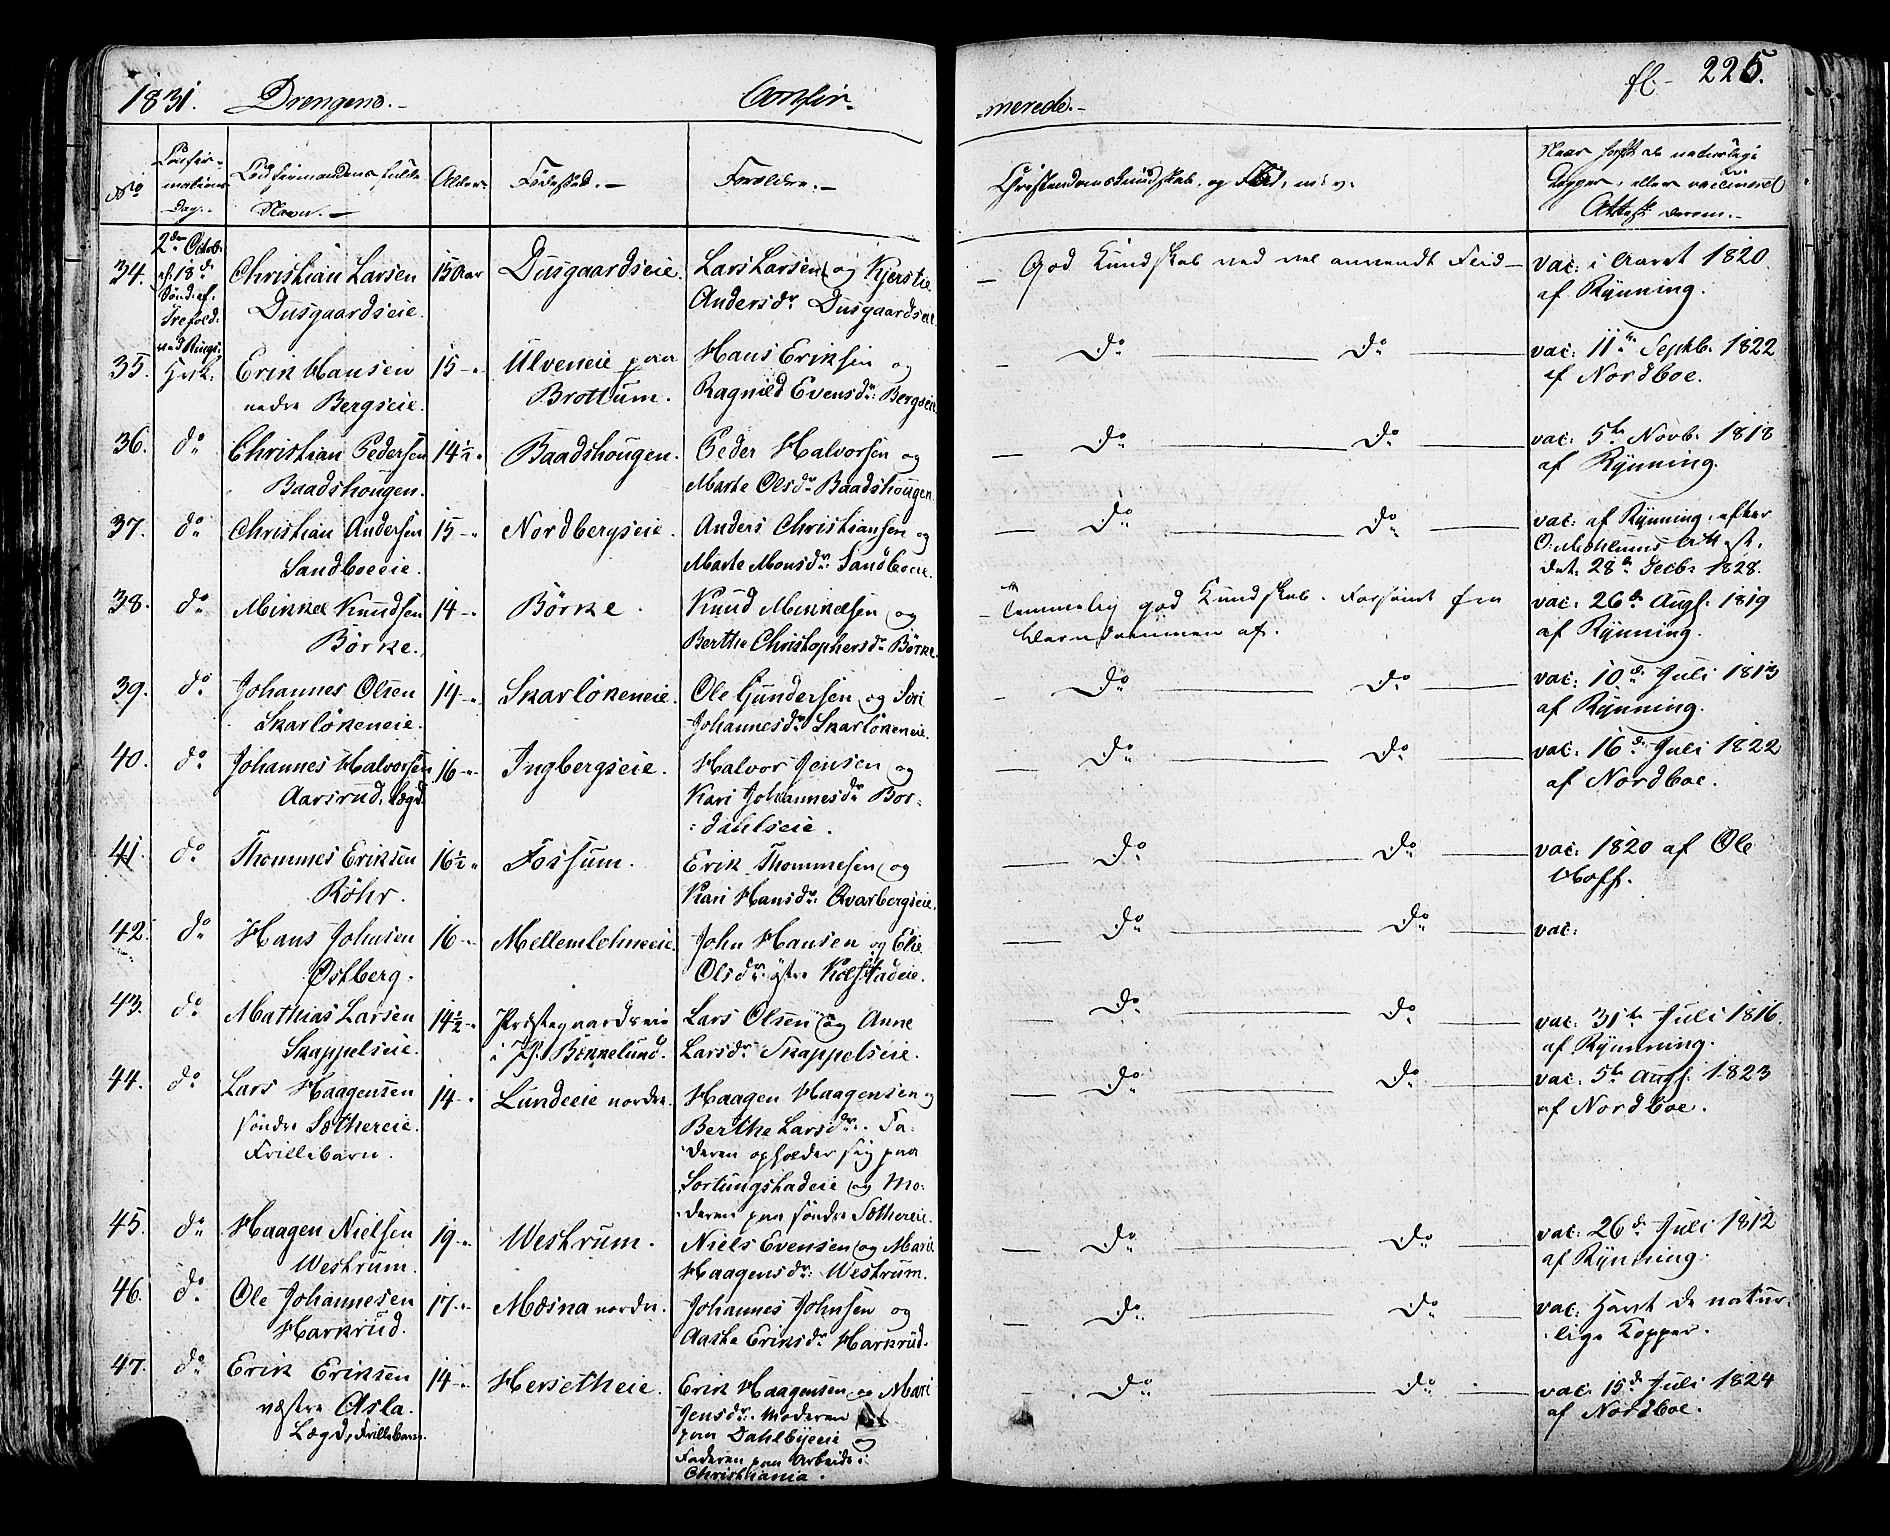 1831. Drengene.- Confir-
-merede.-
fl- 225.
No
Confir-
mations
Dag.-
Confirmandens fulde
Navn.-
Alder
Födested.-
Forældre.-
Christendomskundskab, og Flid, m: v:
Naar havt de naturlige
Kopper, eller vaccineret
Attest derom.-
34.
2den Octob.
18de
Sönd. ef.
Trefold.
ved Rings.
Hvk.
Christian Larsen
Dusgaardseie.
15 Aar
Dusgaardseie.
Lars Larsen og Kjerstie
Andersdr Dusgaardseie.
God Kundskab ved vel anvendt Flid
vac: i Aaret 1820
af Rynning.
35.
Erik Hansen
nedre Bergseie.
15-"
Ulveneie paa
Brottum.
Hans Eriksen og
Ragnild Evensdr: Bergseie
Do Do
vac: 11te Septb. 1822
af Nordboe.
36. do
Christian Pedersen
Baadshougen.
14½"
Baadshougen.
Peder Halvorsen og
Marte Olsdr Baadshougen.
Do Do
vac: 5te Novb. 1818
af Rynning.
37. do
Christian Andersen
Sandboeeie.
15-"
Nordbergseie.
Anders Christiansen og
Marte Monsdr Sandboeie.
Do Do
vac: af Rynning, efter
O. Mohlums Attest.
dat: 28de Decb. 1828.
38. do
Mikkel Knudsen
Börke.
14-"
Börke.
Knud Mikkelsen og
Berthe Christophersdr Börke.
Temmelig god Kundskab. Forsömt fra
Barndommen af.
vac: 26de Augs. 1819
af Rynning.
39. do
Johannes Olsen
Skarlökeneie.
14-"
Skarlökeneie.
Ole Gundersen og Siri
Johannesdr Skarlökeneie.
Do Do
vac: 10de Juli 1813
af Rynning.
40. do
Johannes Halvorsen
Aarsrud. Lægd.
16-"
Ingbergseie.
Halvor Jensen og
Kari Johannesdr Bor-
dahlseie.
Do Do
vac: 16de Juli 1822
af Nordboe.
41. do
Thommes Eriksen
Röhr.
16½"
Fossum.
Erik Thommesen og
Kari Hansdr: Qvarbergseie.
Do Do
vac: 1820 af Ole
Hoff.
42. do
Hans Johnsen
Østberg.
16-"
Mellemlehneeie.
John Hansen og Elie
Olsdr: östre Kolstadeie.
Do Do
vac:
43. do
Mathias Larsen
Skappelseie.
14½-"
Præstegaardseie
i Pr. Bennelund.
Lars Olsen og Anne
Larsdr Skappelseie.
Do Do
vac: 31te Juli 1816.
af Rynning.
44. do
Lars Haagensen
söndre Sothereie.
Frillebarn.
14-"
Lundeeie nordre.
Haagen Haagensen og
Berthe Larsdr:. Fa-
deren opholder sig paa
Sortungstadeie og Mo-
deren paa söndre Sothereie.
Do Do
vac: 5te Augs. 1823
af Nordboe.
45. do
Haagen Nielsen
Westrum.
19-"
Westrum.
Niels Evensen og Marie
Haagensdr: Westrum.
Do Do
vac: 26de Juli 1812
af Rynning.
46. do
Ole Johannesen
Harkrud.
17-"
Mæsna nordre.
Johannes Johnsen og
Aaste Eriksdr Harkrud.
Do Do
vac: Havt de natur-
lige Kopper.
47. do
Erik Eriksen
væstre Asla.
Lægd, Frillebarn.
14-"
Hersetheie.
Erik Haagensen og Mari
Jensdr:. Moderen
paa Dahlbyeeie og
Faderen paa Arbeide i
Christiania.
Do Do
vac: 15de Juli 1824
af Nordboe.